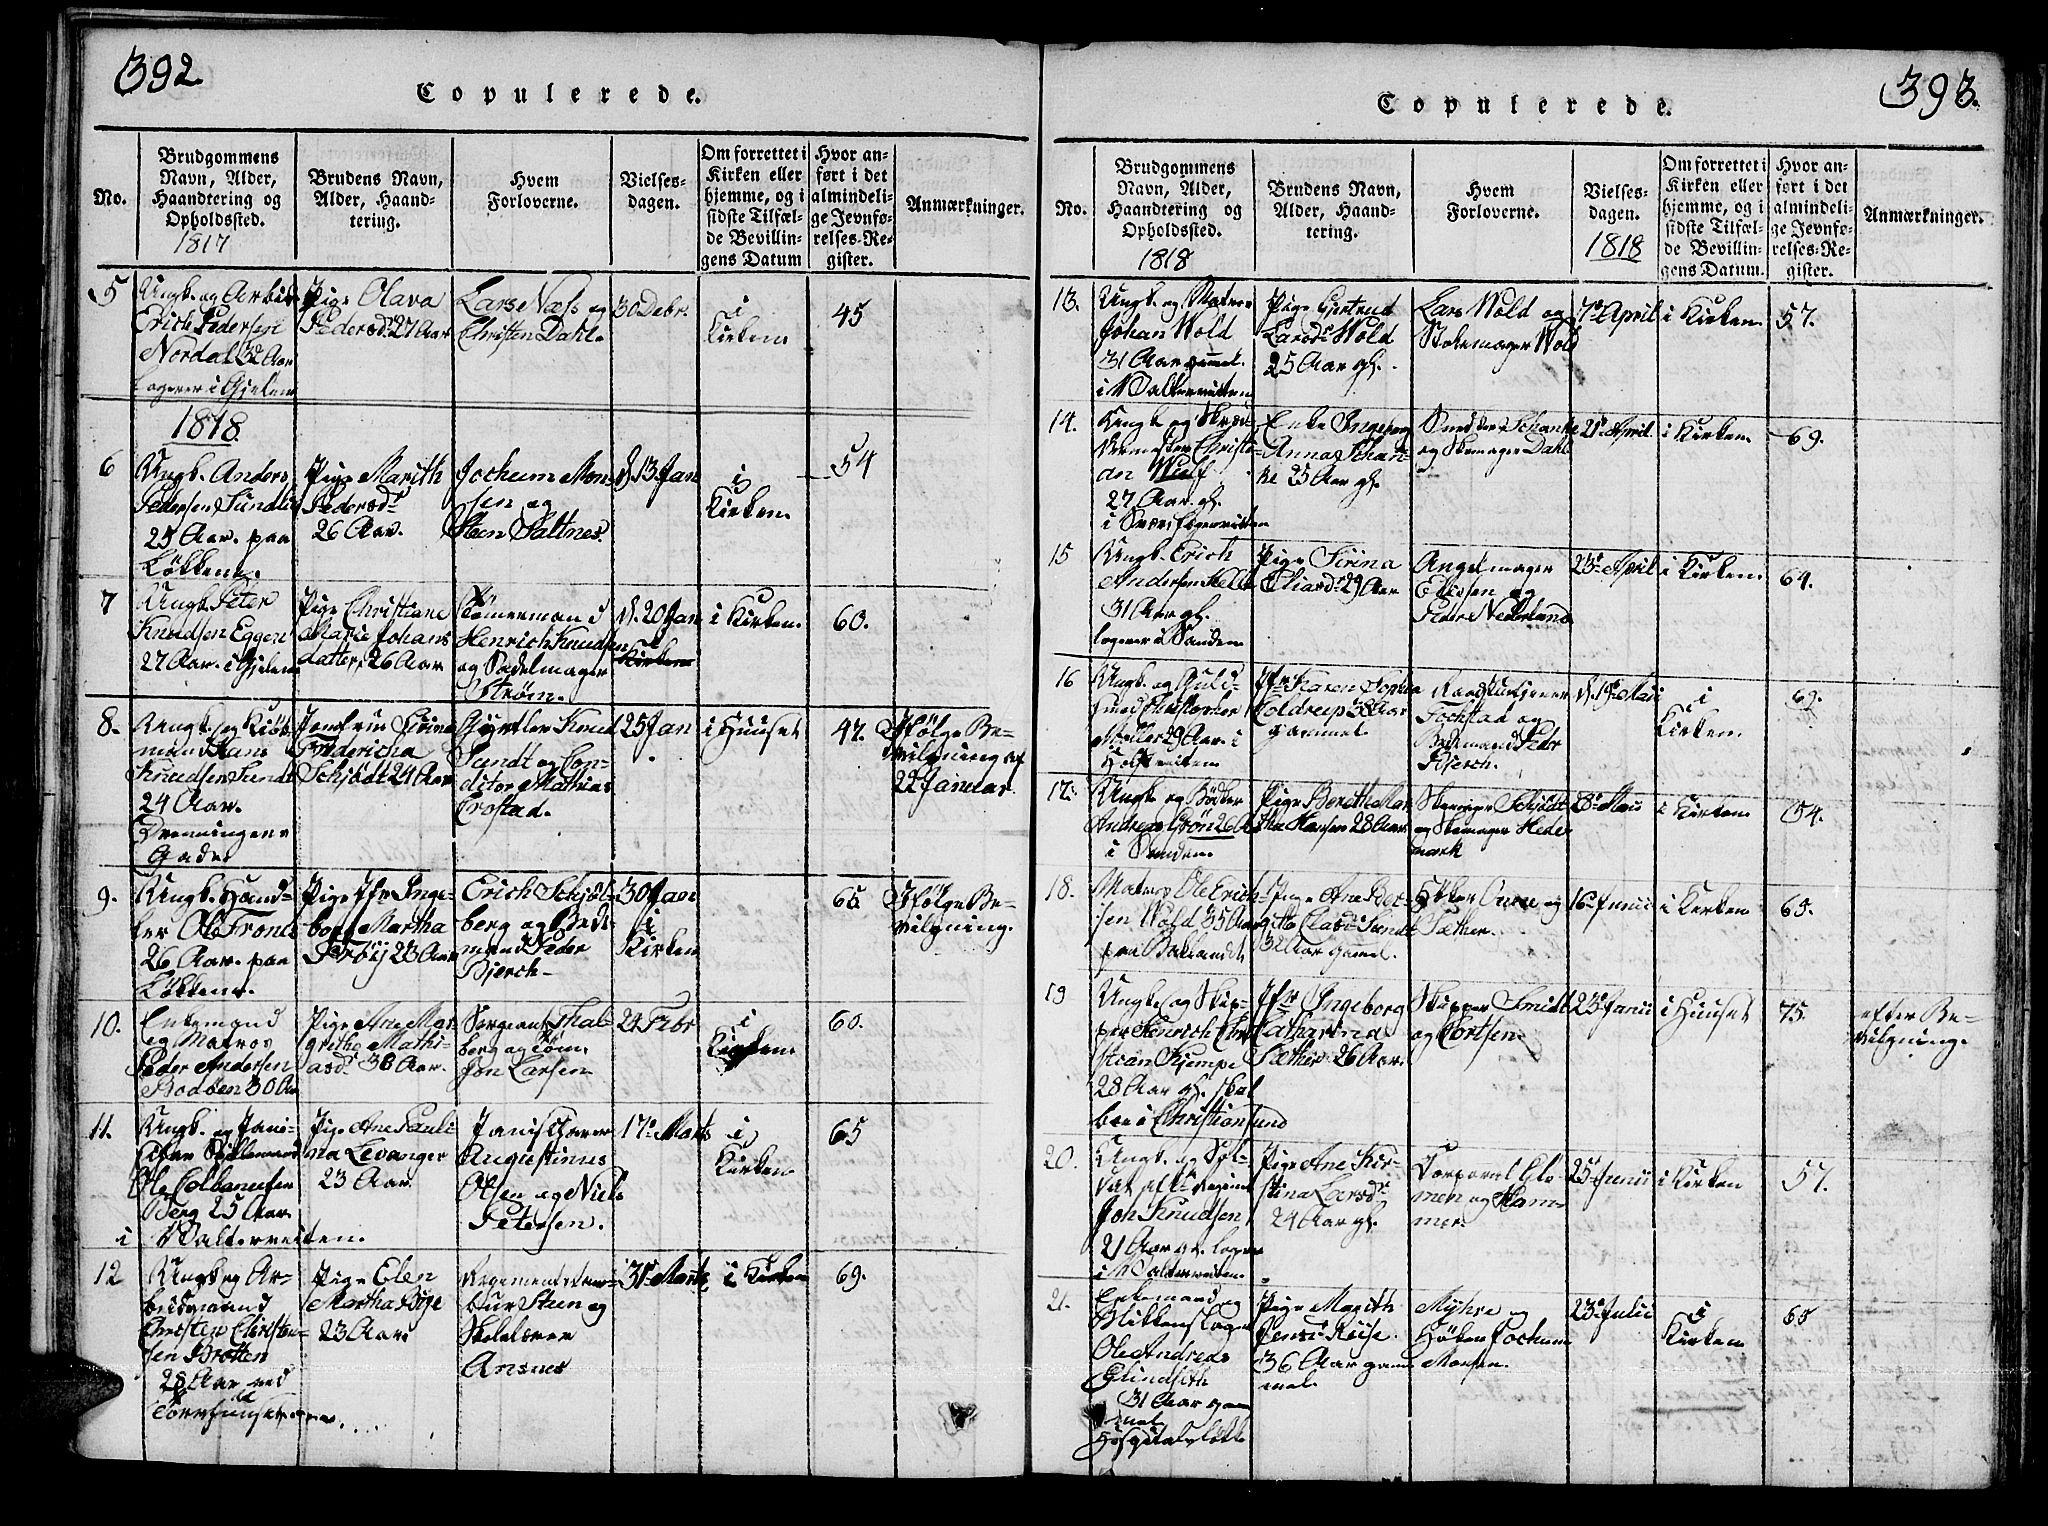 392.
Copulerede.
No.
Brudgommens
Navn, Alder,
Haandtering og
Opholdssted.
1817
Brudens Navn,
Alder, Haand-
tering.
Hvem
Forloverne.
Vielses-
dagen.
Om forrettet i
Kirken eller
hjemme, og i
sidste Tilfæl-
de Bevillin-
gens Datum
Hvor an-
ført i det
almindeli-
ge Jevnfø-
relses-Re-
gister.
Anmærkninger.
5
Ungk. og Arbid.
Erich Pedersen
Nordal 32 Aar
Logerer i Gjelen
Pige Olava
Pedersd. 27 Aar
Lars Næss og
Christen Dahl.
30 Debr.
i
Kirken
45
1818
6
Ungk. Anders
Pedersen Sundli
25 Aar. paa
Løkken.
Pige Marith
Pedersdr
26 Aar.
Jochum Mon-
sen og
Steen Saltnes.
d. 13 Jan
i
Kirken.
54
7
Ungk. Peter
Knudsen Eggen
27 Aar. i Gjelen
Pige Christiane
Marie Johans
datter, 26 Aar
Tømermand
Henrich Knudsen
og Sadelmager
Strøm.
d. 20 Jan
Kirken
i Kirken.
60.
8.
Ungk. og Kiøb-
mand Hans
Knudsen Sundt
24 Aar.
Dronningens
Gade.
Jomfrue Sirina
Fredericha
Schjødt 24 Aar
Gjørtler Knud
Sundt og Con-
ditor Mathias
Trostad.
25 Jan
i Huuset
47.
Ifølge Be-
vilgning af
22 Januar.
9.
Ungk. Hand-
ler Ole Frone
26 Aar. paa
Løkken.
Pige Jfr Inge-
borg Martha
Frøij 23 Aar
Erich Schjøl-
berg og Bed-
mand Peder
Bjerch
30 Jan
i
Kirken
65
Ifølge Be-
vilgning.
10.
Enkemand
og Matros
Peder Andersen
Bodben 30 Aar
Pige Ane Mar-
grithe Mathi-
asd. 36 Aar.
Sergeant Thal-
berg og Tøm.
Jon Larsen
24 Febr
i
Kirken.
60.
11.
Ole Colbensen
Berg 25 Aar.
i Walterveiten.
Pige Ane Pauli
na Levanger
23 Aar
Augustinus
Olsen og Niels
Petersen.
17de Marts
i
Kirken
65
12
Ungk. og Ar-
beidsmand
Christen Christen-
sen Brotten
28 Aar ved
Pige Elen
Martha Bye
23 Aar
Regimentstam-
bur Steen og
Skolelærer
Ansnes
31te Marts
i Kirken
69.
393.
Copulerede.
No.
Brudgommens
Navn, Alder,
Haandtering og
Opholdssted.
1818
Brudens Navn,
Alder, Haand-
tering.
Hvem
Forloverne.
Vielses-
dagen.
1818
Om forrettet i
Kirken eller
hjemme, og i
sidste Tilfæl-
de Bevillin-
gens Datum.
Hvor an-
ført i det
almindeli-
ge Jevnfø-
relses-Re-
gister.
Anmærkninger.
13.
Ungk. og Matros
Johan Wold
31 Aar gammel.
i Walterveiten
Pige Gjertrud
Larsdr Wold
25 Aar gl.
Lars Wold og
Skoemager Wold
7de April
i Kirken
57.
14.
Ungk. og Skræd-
dermester Christi-
an Wulf
27 Aar. gl.
Enke Ingeborg
Anna Schan-
ke 25 Aar gl.
Schanke
og Skomager Dahl
21de April
i Kirken
69.
15
Ungk. Erich
31 Aar gl.
logerer i Sanden
Pige Sirina
Eliasdr 29 Aar
Elissen og
Peder Nederland
23de April
i Kirken
64.
16
Ungk. og Guld-
smed Christopher
Møller 29 Aar. i
Jfr Karen Sophia
Coldreup 38 Aar
gammel.
Fochstad og
Bedemand Peder
Bjerch.
d. 19de Maii
i
Kirken
69.
17.
Ungk. og Bøder
Andreas Grøn 26 A
i Sanden.
Pige Berethe Mar
tha Hansen 28 Aar.
Skomager Schjødt
og Skomager Hede
mark
28de Maii
i Kirken
54.
18.
Matros Ole Erich-
sen Wold 35 Aar
paa Baklandet
Pige Ane Ber-
gitte Clasdr Sundt
32 Aar gammel.
Sæther.
16de Junii
i Kirken
65.
19
Ungk. og Skip-
per Henrich Chri
stian Kjempe
28 Aar gl. skal
boe i Christiansund
Jfr Ingeborg
Catharina
Sæther 26 Aar.
Skipper Smidt
og Cortsen
23de Junii
i Huuset
75.
efter Be-
vilgning.
20.
Ungk. og Sol-
dat
Joh. Knudsen
21 Aar gl. loger
i Walterveiten.
Pige Ane Kir-
stina Larsdr
24 Aar gl.
Corporal Glo-
men og Ham-
mer.
25de Junii
i Kirken
57.
21.
Enkemand og
Blikkenslager
Ole Andreas
Glindsith
31 Aar gam
mel
Hospitalsløkk
Pige Magith
Jensdr Reise
36 Aar gam
mel.
Myhre og
Høker Jochum
Monsen.
23de Julii
i
Kirken
65